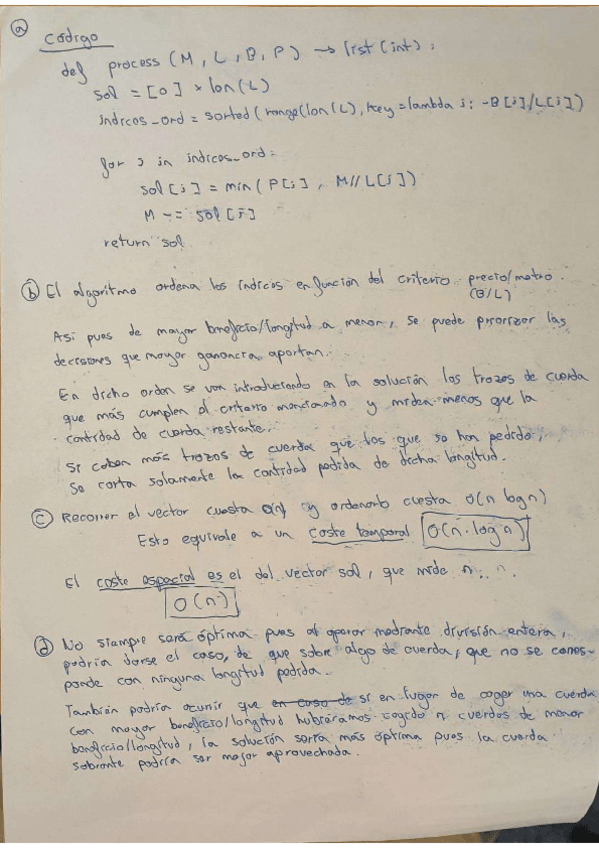 ⓐ Código
def process (M, L, B, P) → list (int):
sol = [0] * len(L)
indices_ord = sorted(range(len(L), key = lambda i: -B[i]/L[i])
for i in indices_ord:
sol [i] = min (P[i], M//L[i])
M -= sol [i]
return sol
ⓑ El algoritmo ordena los índices en función del criterio precio/metro.
(B/L)
Así pues de mayor beneficio/longitud a menor, se puede priorizar las
decisiones que mayor ganancia aportan.
En dicho orden se van introduciendo en la solución los trozos de cuerda
que más cumplen el criterio mencionado y miden menos que la
cantidad de cuerda restante.
Si caben más trozos de cuerda que los que se han pedido,
se corta solamente la cantidad pedida de dicha longitud.
ⓒ Recorrer el vector cuesta O(n) y ordenarlo cuesta O(n log n)
Esto equivale a un coste temporal O(n·log n)
El coste espacial es el del vector sol, que mide n.
O(n)
ⓓ No siempre será óptima pues al operar mediante división entera,
podría darse el caso, de que sobre algo de cuerda, que no se corres-
ponde con ninguna longitud pedida.
También podría ocurrir que en caso de si en lugar de coger una cuerda
con mayor beneficio/longitud hubiéramos cogido n cuerdas de menor
beneficio/longitud, la solución sería más óptima pues la cuerda
sobrante podría ser mejor aprovechada.